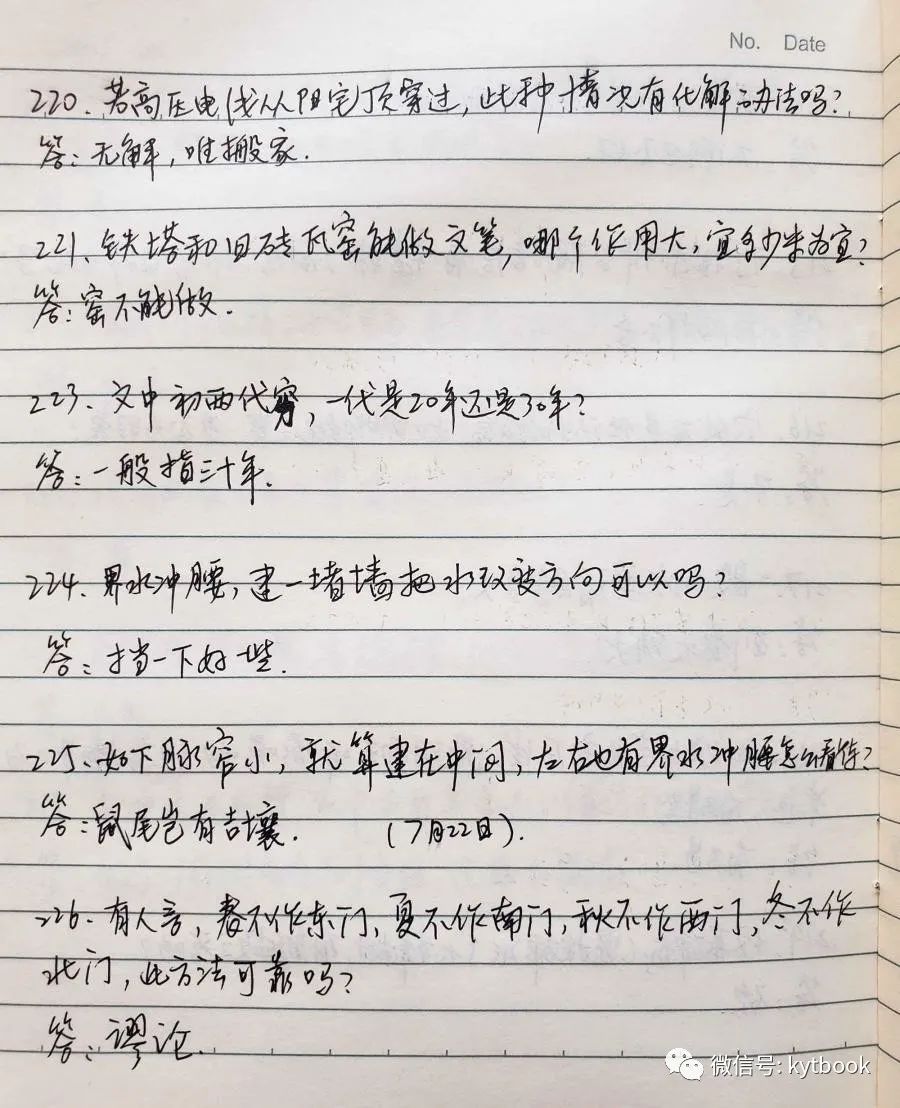 No. Date
220. 若高压电线从阳宅顶穿过,此种情况有化解办法吗?
答:无解,唯搬家.
221、铁塔和旧砖瓦窑能做文笔,哪个作用大,宜多少米为宜?
答:窑不能做.
223、文中初两代穷,一代是20年还是30年?
答:一般指三十年.
224、界水冲腰,建一堵墙把水改被方向可以吗?
答:挡一下好些.
225、如下脉窄小,就算建在中间,左右也有界水冲腰怎么看待?
答:鼠尾岂有吉壤. (7月22日).
226、有人言,春不作东门,夏不作南门,秋不作西门,冬不作
北门,此方法可靠吗?
答:谬论.
微信号: kytbook